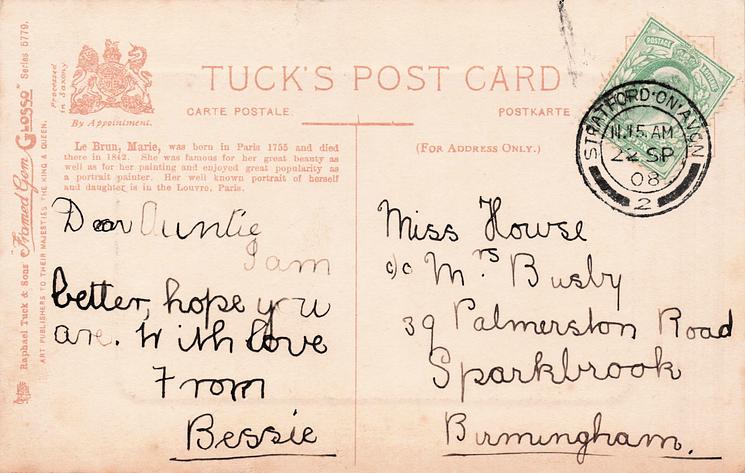 Raphael Tuck & Sons' "Framed Gem Glosso" Series 5779.
ART PUBLISHERS TO THEIR MAJESTIES THE KING & QUEEN.
Processed
in Saxony
By Appointment.
TUCK'S POST CARD
CARTE POSTALE.
POSTKARTE
Le Brun, Marie, was born in Paris 1755 and died
there in 1842. She was famous for her great beauty as
well as for her painting and enjoyed great popularity as
a portrait painter. Her well known portrait of herself
and daughter is in the Louvre, Paris.
(FOR ADDRESS ONLY.)
POSTAGE
STRATFORD-ON-AVON
11.15 AM
22 SP
08
2
Dear Auntie
I am
better, hope you
are. With love
From
Bessie
Miss Howse
c/o Mrs Busby
39 Palmerston Road
Sparkbrook
Birmingham.